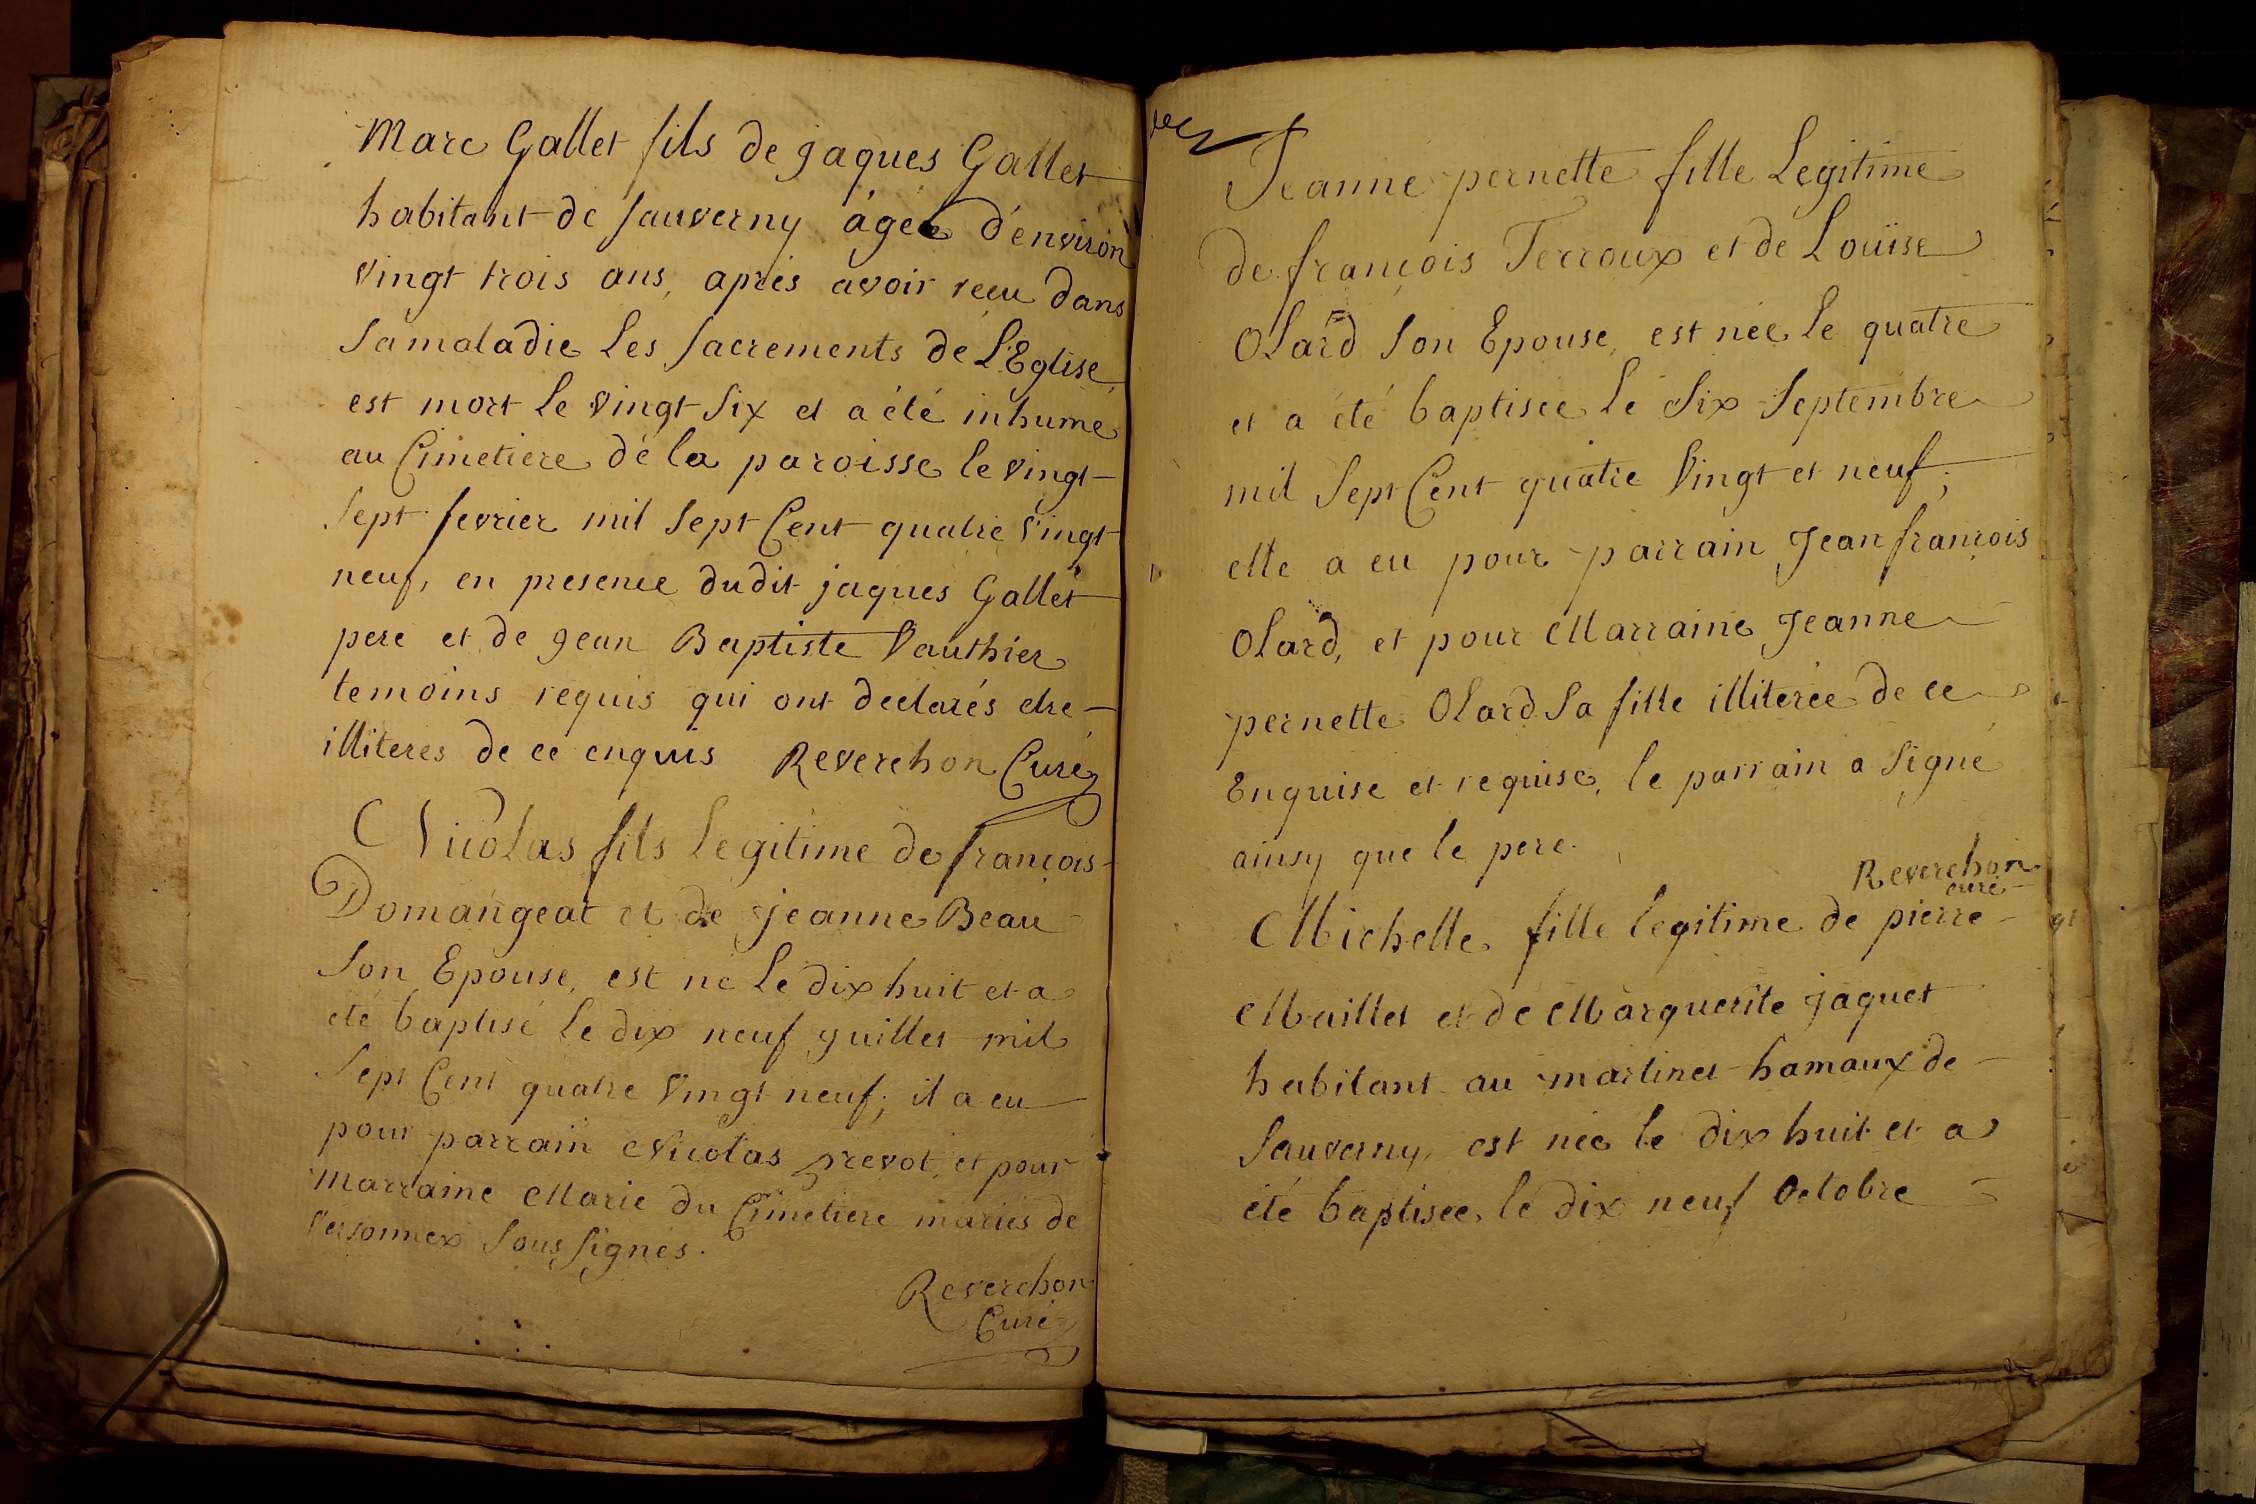 Marc Gallet fils de jaques Gallet
habitant de Sauverny âgée d'environ
vingt trois ans, après avoir reçu dans
sa maladie Les sacrements de L'Eglise,
est mort le vingt six et a été inhumé
au Cimetiere de la paroisse le vingt
sept fevrier mil sept Cent quatre vingt
neuf, en presence dudit jaques Gallet
pere et de jean Baptiste Vauthier
temoins requis qui ont declarés etre
illiteres de ce enquis Reverchon Curé
Nicolas fils legitime de françois
Domangeat et de jeanne Beau
son Epouse, est né Le dix huit et a
été baptisé le dix neuf juillet mil
sept Cent quatre vingt neuf; il a eu
pour parrain Nicolas prevot, et pour
marraine Marie du Cimetiere mariés de
versonnex sous signes.
Reverchon
Curé
Jeanne pernette fille Legitime
de françois Terroux et de Louïse
Olard son Epouse, est née le quatre
et a été baptisée le six Septembre
mil sept Cent quatre vingt et neuf;
elle a eu pour parrain Jean françois
Olard, et pour Marraine Jeanne
pernette Olard sa fille illiterée de ce
Enquise et requise, le parrain a signé
ainsy que le pere.
Reverchon
curé
Michelle fille legitime de pierre
Maillet et de Marguerite jaquet
habitant au martinet hamaux de
Sauverny, est née le dix huit et a
été baptisée le dix neuf Octobre